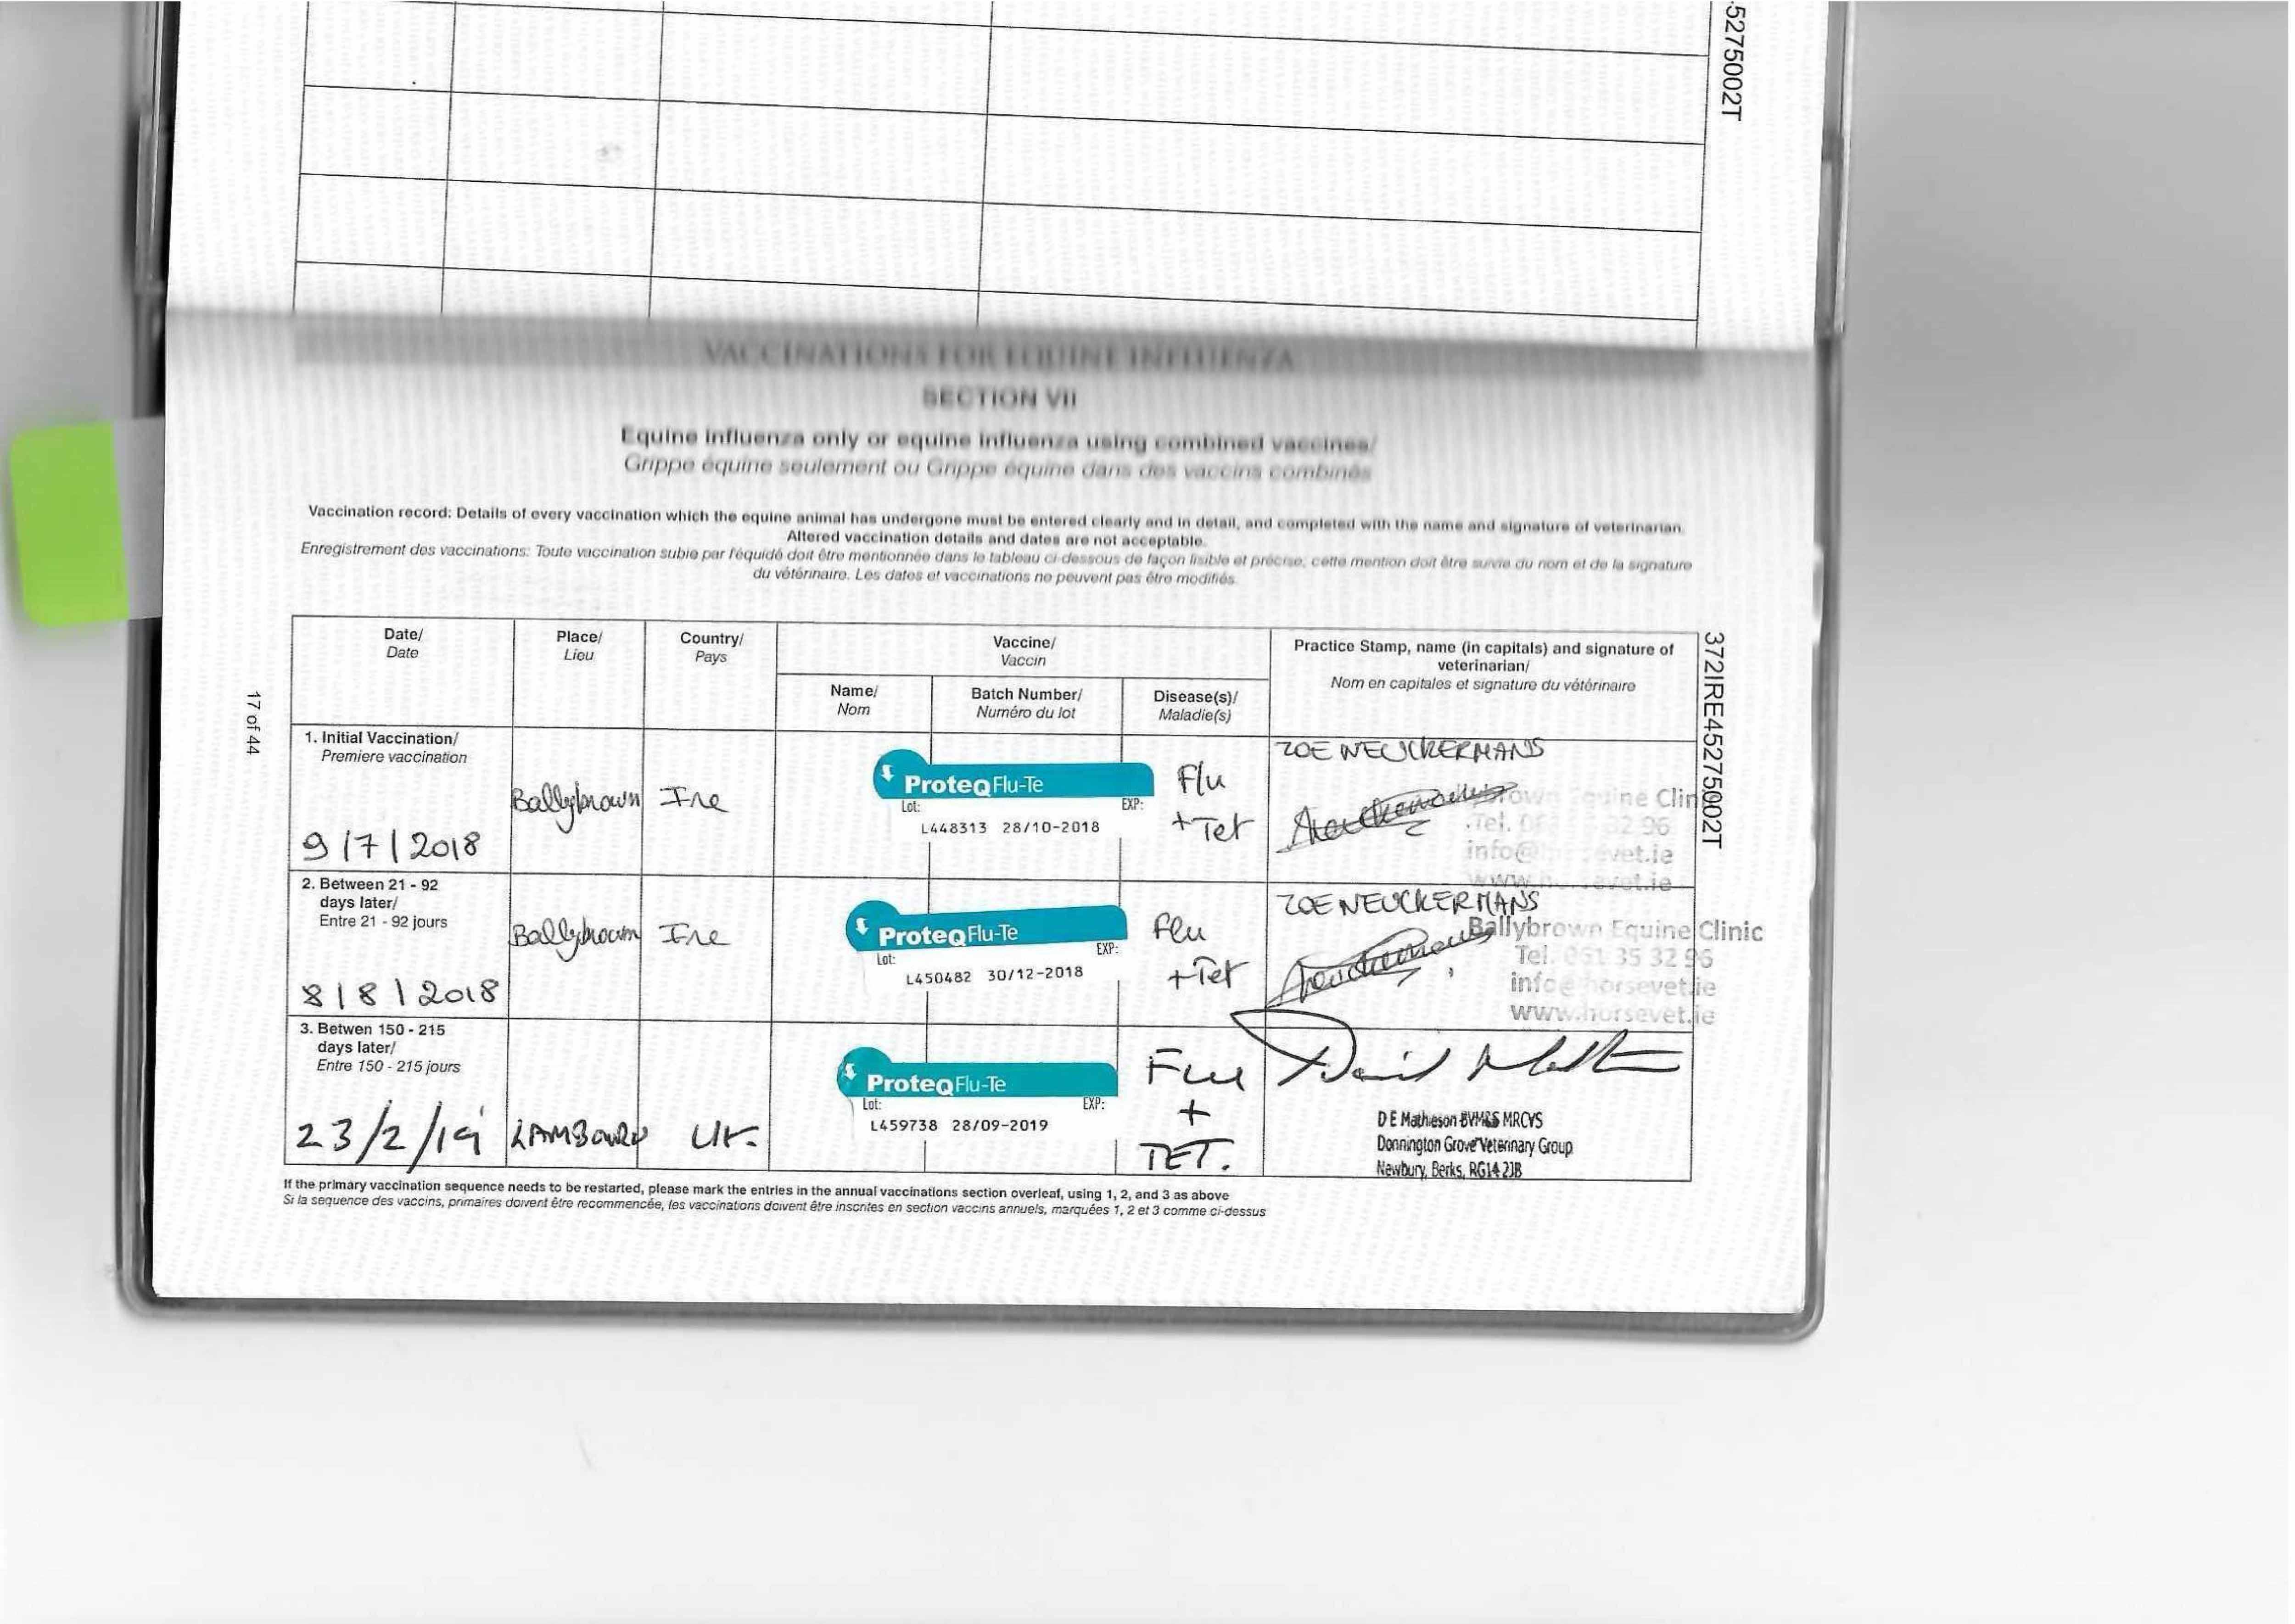 45275002T
VACCINATIONS FOR EQUINE INFLUENZA
SECTION VII
Equine influenza only or equine influenza using combined vaccines/
Grippe équine seulement ou Grippe équine dans des vaccins combinés
Vaccination record: Details of every vaccination which the equine animal has undergone must be entered clearly and in detail, and completed with the name and signature of veterinarian.
Altered vaccination details and dates are not acceptable.
Enregistrement des vaccinations: Toute vaccination subie par l'équidé doit être mentionnée dans le tableau ci-dessous de façon lisible et précise, cette mention doit être suivie du nom et de la signature
du vétérinaire. Les dates et vaccinations ne peuvent pas être modifiés.
17 of 44
372IRE45275002T
Date/
Date
Place/
Lieu
Country/
Pays
Vaccine/
Vaccin
Practice Stamp, name (in capitals) and signature of
veterinarian/
Nom en capitales et signature du vétérinaire
Name/
Nom
Batch Number/
Numéro du lot
Disease(s)/
Maladie(s)
1. Initial Vaccination/
Premiere vaccination
9/7/2018
Ballybrown
Ire
ProteqFlu-Te
Lot: EXP:
L448313 28/10-2018
Flu
+ Tet
ZOE NEUCKERMANS
Equine Clin
Tel. 96
info@ vet.ie
2. Between 21 - 92
days later/
Entre 21 - 92 jours
8/8/2018
Ballybrown
Ire
ProteqFlu-Te
Lot: EXP:
L450482 30/12-2018
Flu
+Tet
ZOE NEUCKERMANS
Ballybrown Equine Clinic
Tel. 061 35 32 96
info@horsevet.ie
www.horsevet.ie
3. Betwen 150 - 215
days later/
Entre 150 - 215 jours
23/2/19
LAMBOURN
UK.
ProteqFlu-Te
Lot: EXP:
L459738 28/09-2019
Flu
+
TET.
D E Mathieson BVM&S MRCVS
Donnington Grove Veterinary Group
Newbury, Berks, RG14 2JB
If the primary vaccination sequence needs to be restarted, please mark the entries in the annual vaccinations section overleaf, using 1, 2, and 3 as above
Si la sequence des vaccins, primaires doivent être recommencée, les vaccinations doivent être inscrites en section vaccins annuels, marquées 1, 2 et 3 comme ci-dessus